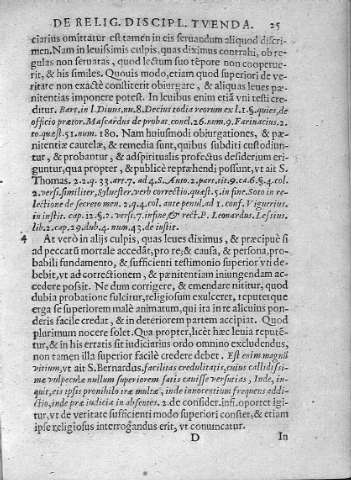 DE RELIG. DISCIPL. TVENDA. 25
ciarius omittatur est tamen in eis seruandum aliquod discri-
men. Nam in leuissimis culpis, quas diximus contrahi, ob re-
gulas non seruatas, quod lectum suo tẽpore non cooperue-
rit, & his similes. Quouis modo, etiam quod superiori de ve-
ritate non exactè consliterit obiurgare, & aliquas leues pæ-
nitentias imponere potest. In leuibus enim etiã vni testi cre-
ditur. Bart, in l. Diuus, nu. 8. Decius todia reorum ex l. 1. §. quies, de
officio prætor. Mascardus de probat, concl. 26. num. 9. Farinacius. 2.
to. quæst. 51. num. 180. Nam huiusmodi obiurgationes, & pæ-
nitentiæ cautelæ, & remedia sunt, quibus subditi custodiun-
tur, & probantur, & ad spiritualis profectus desiderium eri-
guntur, qua propter, & publicè repræhendi possunt, vt ait S.
Thomas. 2. 2. q. 33. art. 7. ad. 4. S. Anto. 2. par. tit. 9. ca. 6. §. 4. col.
2. vers. similiter, Syluester, verb correctio. quæst. 5. in fine. Soto in re-
lectione de secreto mem. 2. q. 4. col. ante penul, ad 1. conf. Viguerius.
in instit. cap. 12. §. 2. vers. 7. in fine & rect. P. Leonardus. Lessius,
lib. 2. cap. 29. dub. 4. num. 43. de instit.
4 At verò in alijs culpis, quas leues diximus, & præcipuè si
ad peccatũ mortale accedãt, pro re, & causa, & persona, pro-
babili fundamento, & sufficienti testimonio superior vti de-
bebit, vt ad correctionem, & pænitentiam iniungendam ac-
cedere possit. Ne dum corrigere, & emendare nititur, quod
dubia probatione fulcitur, religiosum exulceret, reputet que
erga se superiorem malè animatum, qui ita in re alicuius pon-
deris facile credat, & in deteriorem partem accipiat. Quod
plurimum nocere solet. Qua propter, licèt hæc leuia reputẽ-
tur, & in his erratis sit iudiciarius ordo omnino excludendus,
non tamen illa superior facilè credere debet. Est enim magnũ
vitium, vt ait S. Bernardus. facilitas credulitatis, cuius callidissi-
mæ vulpeculæ nullum superiorem satis cauisse versutias, Inde, in-
quit, eis ipsis prohibilo iræ multæ, inde innocentium frequens addi-
ctio, inde præ iudicia in absentes. 2. de consider. infi. oportet igi-
tur, vt de veritate sufficienti modo superiori constet, & etiam
ipse religiosus interrogãdus erit, vt conuncatur.
D In